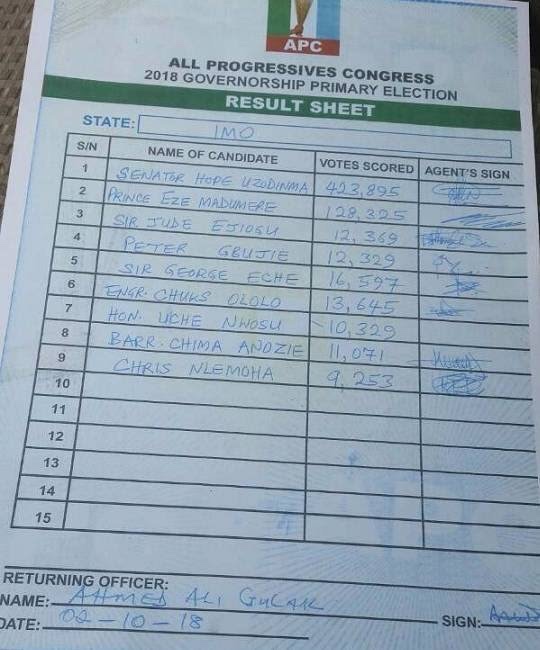 APC
ALL PROGRESSIVES CONGRESS
2018 GOVERNORSHIP PRIMARY ELECTION
RESULT SHEET
STATE: IMO
S/N NAME OF CANDIDATE VOTES SCORED AGENT'S SIGN
1 SENATOR HOPE UZODINMA 423,895
2 PRINCE EZE MADUMERE 128,325
3 SIR JUDE EJIOGU 12,369
4 PETER GBUJIE 12,329
5 SIR GEORGE ECHE 16,597
6 ENGR. CHUKS OLOLO 13,645
7 HON. UCHE NWOSU 10,329
8 BARR. CHIMA ANOZIE 11,071
9 CHRIS NLEMOHA 9,253
10
11
12
13
14
15
RETURNING OFFICER:
NAME: AHMED ALI GULAK
DATE: 02-10-18 SIGN: